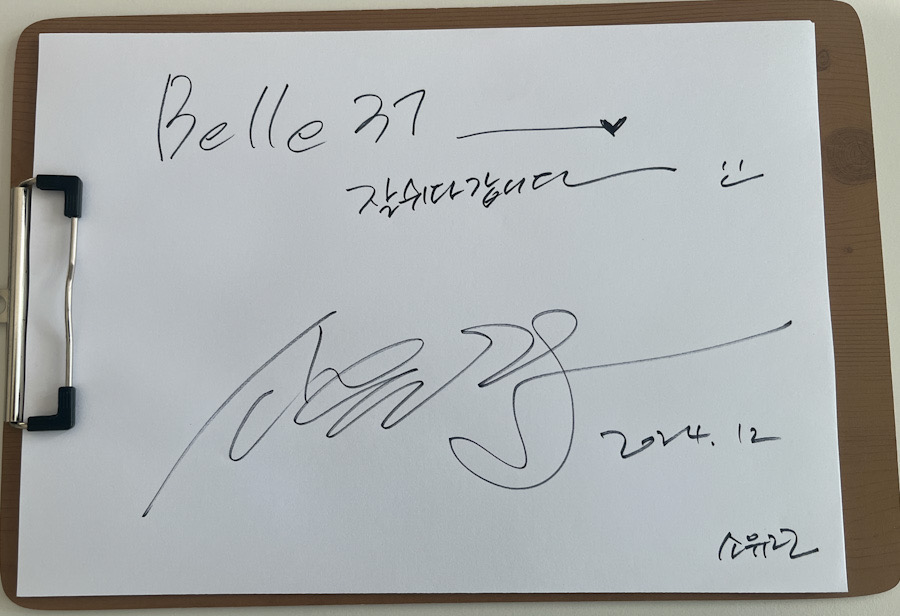 Belle 37 ♥
잘쉬다갑니다 :)
2024. 12